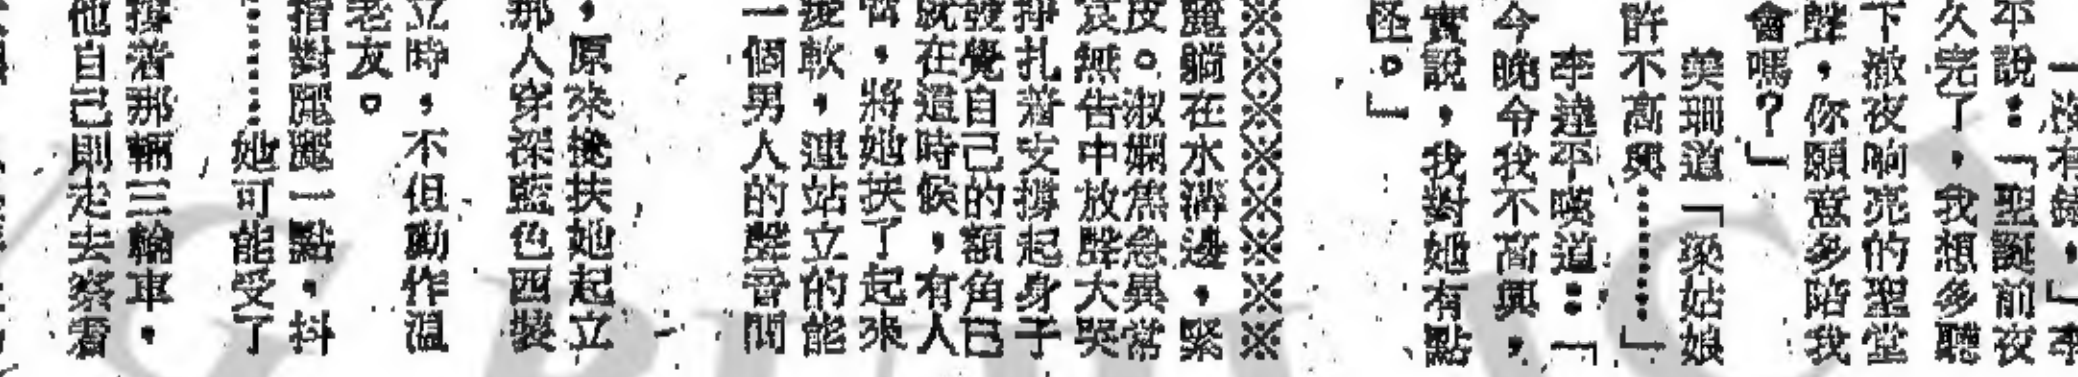 一沒有錯，」李
不說：「聖誕前夜
久完了，我想多聽
下澈夜响亮的聖堂
聲，你願意多陪我
會嗎？」
美珊道「梁姑娘
許不高興……」
李達不嘆道：「
今晚令我不高興，
實說，我對她有點
怪。」
※※※※※※※
麗躺在水溝邊，緊
皮。淑嫻焦急異常
哀無告中放聲大哭
掙扎着支撐起身子
發覺自己的額角已
就在這時候，有人
，將她扶了起來
軟，連站立的能
一個男人的聲音問
，原來攙扶她起立
那人穿深藍色西裝
立時，不但動作溫
老友。
指對麗麗一點，抖
……她可能受了
撐着那輛三輪車，
他自己則走去察看